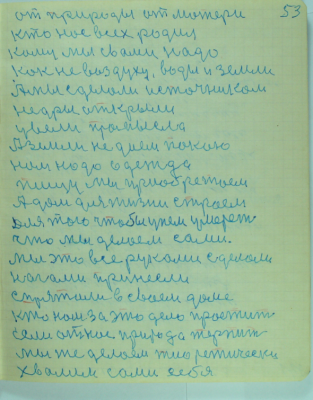 53
от природы от матери
кто нас всех родил
кому мы с вами надо
как не воздуху, воды и земли
А мы сделали источником
недры открыли
увели промысла
А земли не даем покою
нам надо одежда
пищу мы приобретаем
А дом для жизни строем
для того чтобы у нем умереть
что мы делаем сами.
мы это все руками сделали
ногами принесли
спрятали в своем доме
кто нам за это дело простит
если от нас природа терпит
мы же делаем теоретически
хвалим сами себя